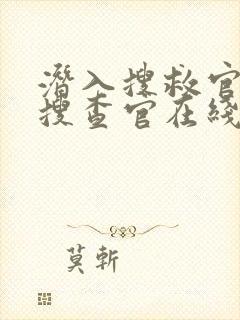 潛入搜救官
搜查官在綫
莫斬